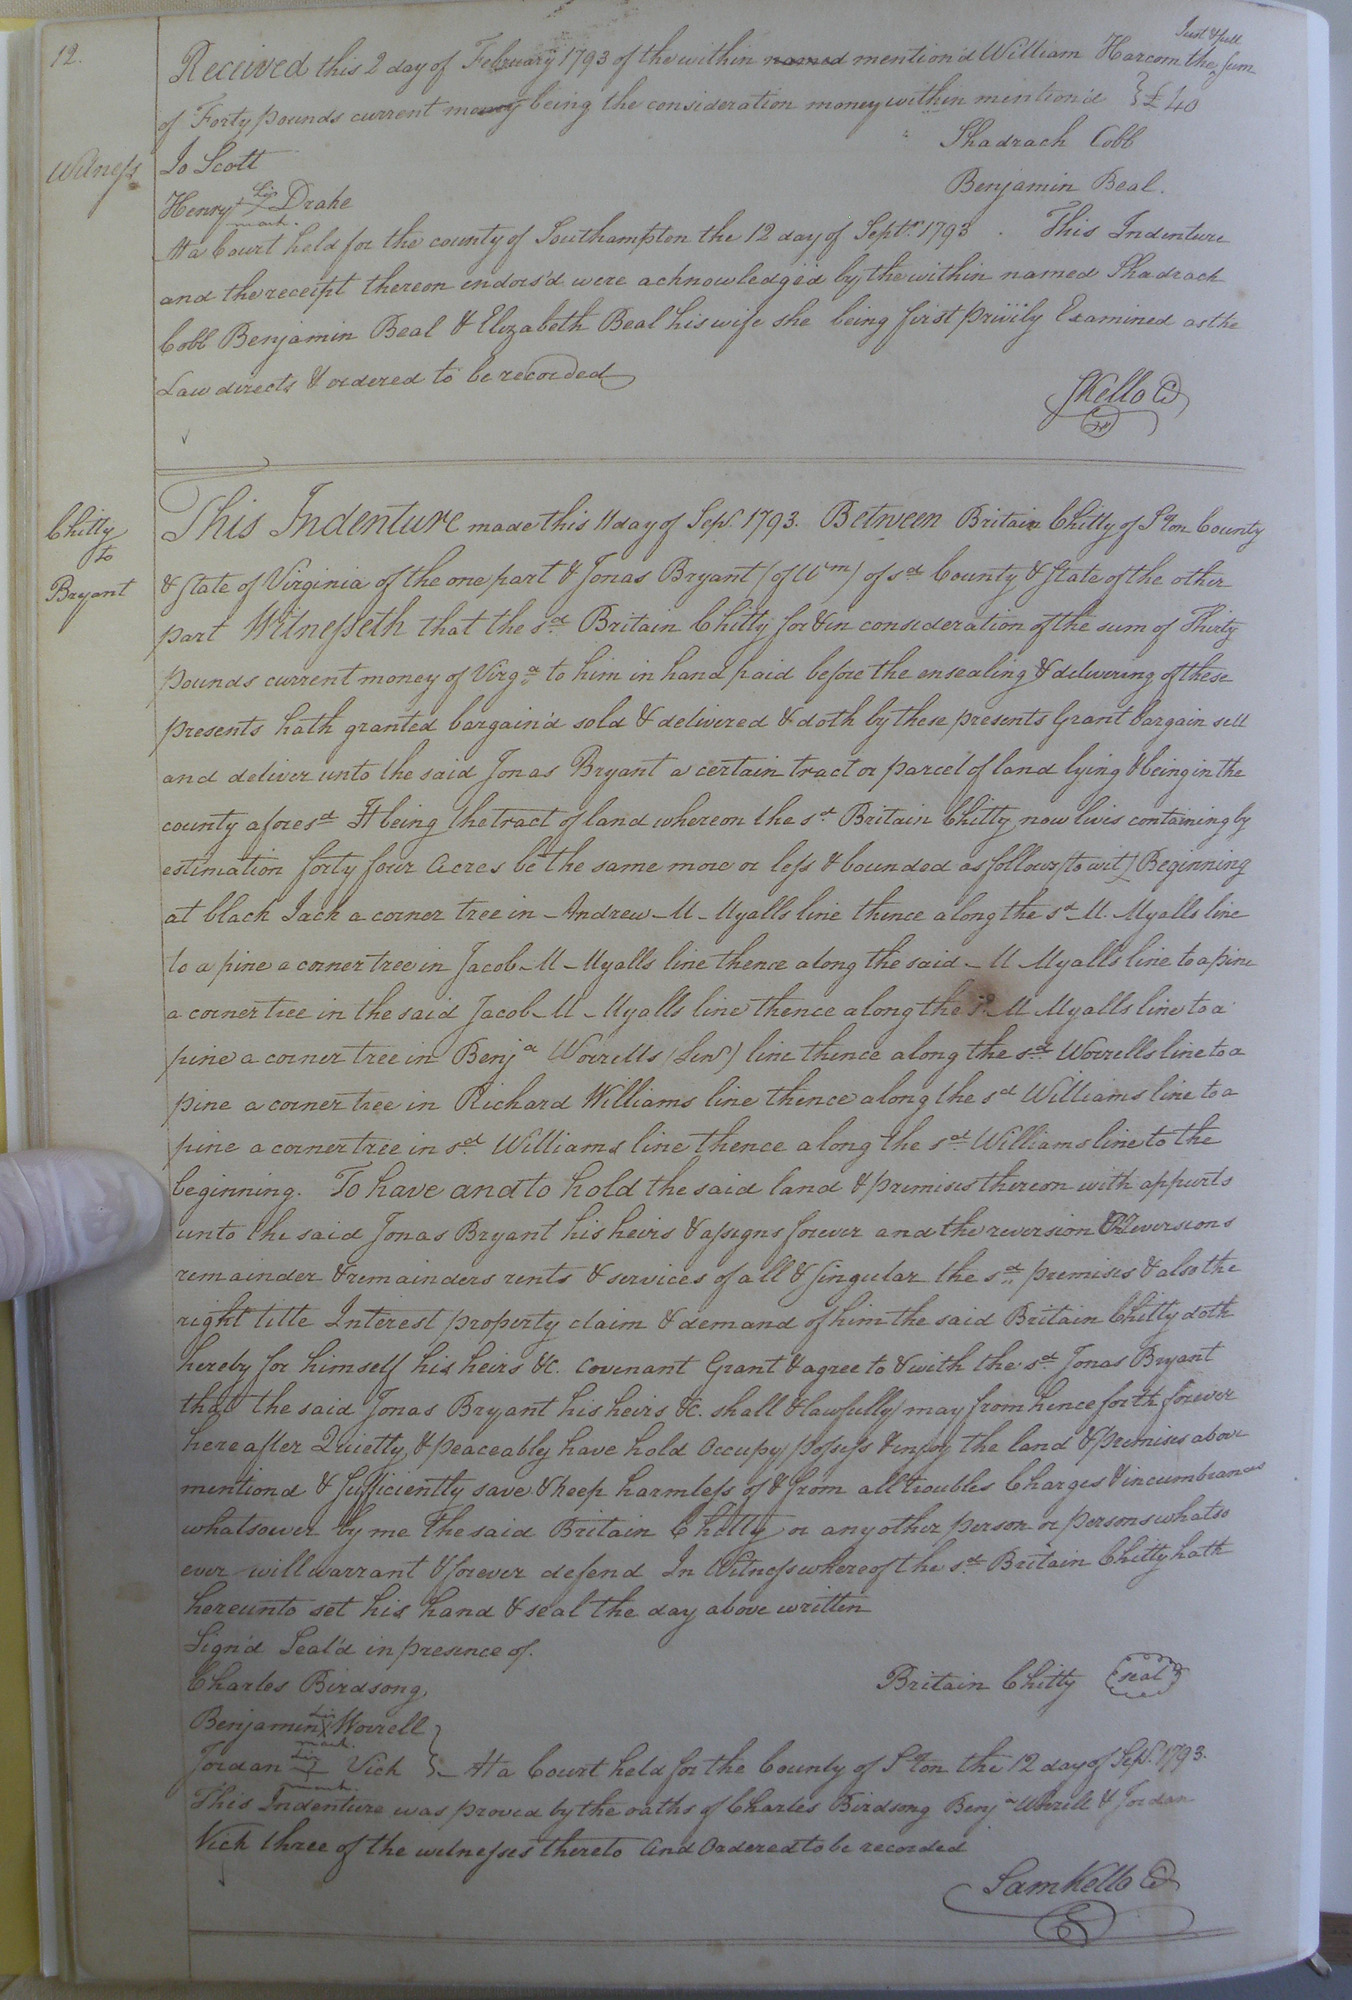 12.
Just & full
Received this 2 day of February 1793 of the within named mention'd William Harcom the sum
of Forty pounds current money being the consideration money within mention'd } £40
Shadrach Cobb
Witness Jo Scott
Benjamin Beal.
his
Henry X Drake
mark.
At a Court held for the county of Southampton the 12 day of Septr. 1793. This Indenture
and the receipt thereon endors'd were acknowledged by the within named Shadrach
Cobb Benjamin Beal & Elizabeth Beal his wife she being first privily Examined as the
Law directs & ordered to be recorded
SKello C
Chitty
to
Bryant
This Indenture made this 11 day of Sept. 1793. Between Britain Chitty of Sºton County
& State of Virginia of the one part & Jonas Bryant (of Wm) of sd County & State of the other
part Witnesseth that the sd. Britain Chitty for & in consideration of the sum of Thirty
pounds current money of Virga. to him in hand paid before the ensealing & delivering of these
presents hath granted bargain'd sold & delivered & doth by these presents Grant bargain sell
and deliver unto the said Jonas Bryant a certain tract or parcel of land lying & being in the
county aforesd It being the tract of land whereon the sd. Britain Chitty now livis containing by
estimation forty four Acres be the same more or less & bounded as follows (to wit) Beginning
at black Jack a corner tree in Andrew - M - Myalls line thence along the sd M. Myalls line
to a pine a corner tree in Jacob - M - Myalls line thence along the said - M Myalls line to a pine
a corner tree in the said Jacob - M - Myalls line thence along the sd. M Myalls line to a
pine a corner tree in Benja Worrells (Senr) line thence along the sd. Worrells line to a
pine a corner tree in Richard Williams line thence along the sd Williams line to a
pine a corner tree in sd. Williams line thence along the sd. Williams line to the
beginning. To have and to hold the said land & premises thereon with appurts
unto the said Jonas Bryant his heirs & assigns forever and the reversion & Reversions
remainder & remainders rents & services of all & singular the sd. premises & also the
right title Interest property claim & demand of him the said Britain Chitty doth
hereby for himself his heirs &c. covenant Grant & agree to & with the sd. Jonas Bryant
that the said Jonas Bryant his heirs &c. shall & lawfully may from hence forth forever
hereafter Quietly & peaceably have hold Occupy possess & enjoy the land & premises above
mentiond & sufficiently save & keep harmless of & from all troubles Charges & incumbrances
whatsoever by me the said Britain Chitty or any other person or persons whatso
ever will warrant & forever defend In Witness whereof the sd. Britain Chitty hath
hereunto set his hand & seal the day above written
Sign'd Seal'd in presence of.
Charles Birdsong,
Britain Chitty (seal)
his
Benjamin X Worrell
mark.
his
Jordan + Vick } At a Court held for the County of Sºton the 12 day of Sept. 1793.
mark.
This Indenture was proved by the oaths of Charles Birdsong Benja Worrell & Jordan
Vick three of the witnesses thereto And Ordered to be recorded
Sam Kello C